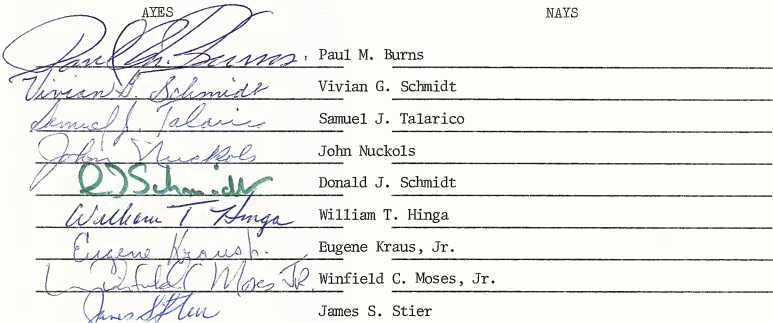 AYES NAYS
Paul M. Burns, Paul M. Burns
Vivian G. Schmidt Vivian G. Schmidt
Samuel J. Talarico Samuel J. Talarico
John Nuckols John Nuckols
D J Schmidt Donald J. Schmidt
William T Hinga William T. Hinga
Eugene Kraus Jr. Eugene Kraus, Jr.
Winfield C Moses JR. Winfield C. Moses, Jr.
James S Stier James S. Stier